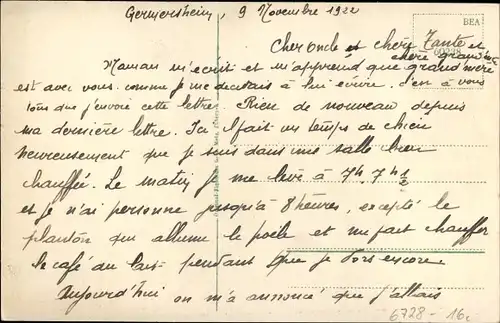 Germersheim, 9 Novembre 1922
BEA
60238
Cher oncle et chère Tante et
chère grand'mère
Maman m'écrit et m'apprend que grand'mère
est avec vous. comme je me decidais à lui écrire. c'en à vous
tous que j'envoie cette lettre. Rien de nouveau depuis
ma dernière lettre. Ici il fait un temps de chien
heureusement que je suis dans une salle bien
chauffée. Le matin je me lève à 7h, 7h 1/2
et je n'ai personne jusqu'à 8 heures, excepté le
planton qui allume le poele et me fait chauffer
le café au lait pendant que je dors encore.
Aujourd'hui on m'a annoncé que j'allais
6728-16.